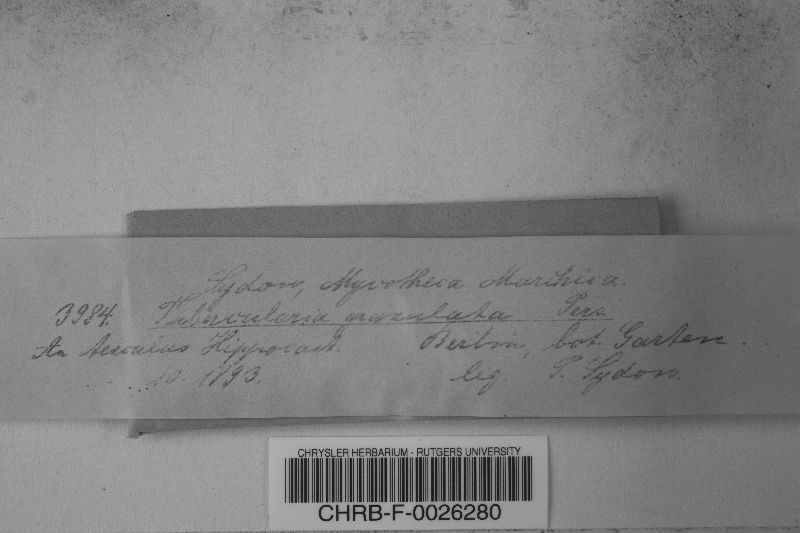 Sydow, Mycotheca Marchica.
3984. Tubercularia granulata Pers.
An Aesculus Hippocast. Berlin, bot. Garten.
10. 1893. leg. P. Sydow.
CHRYSLER HERBARIUM - RUTGERS UNIVERSITY
CHRB-F-0026280